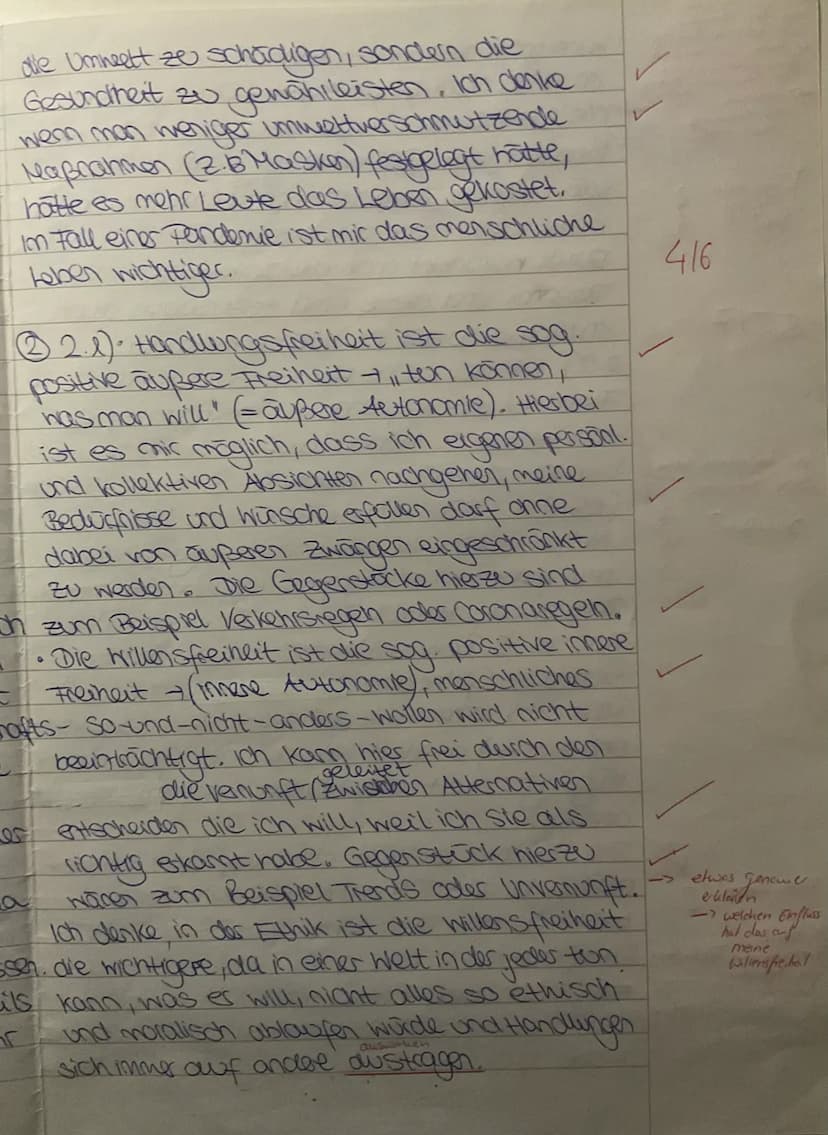 die Umwelt zu schädigen, sondern die
Gesundheit zu gewährleisten. Ich denke
wenn man weniger umweltverschmutzende
Maßnahmen (z.B Masken) festgelegt hätte,
hätte es mehr Leute das Leben gekostet.
Im Fall einer Pandemie ist mir das menschliche
Leben wichtiger.
4/6
② 2.1) • Handlungsfreiheit ist die sog.
positive äußere Freiheit → „tun können,
was man will" (= äußere Autonomie). Hierbei
ist es mir möglich, dass ich eigenen persönl.
und kollektiven Absichten nachgehen, meine
Bedürfnisse und Wünsche erfüllen darf ohne
dabei von äußeren Zwängen eingeschränkt
zu werden. Die Gegenstücke hierzu sind
zum Beispiel Verkehrsregeln oder Coronaregeln.
• Die Willensfreiheit ist die sog. positive innere
Freiheit → (innere Autonomie), menschliches
so-und-nicht-anders-wollen wird nicht
beeinträchtigt. Ich kann hier frei durch den
die Vernunft geleitet zwischen Alternativen
entscheiden die ich will, weil ich sie als
richtig erkannt habe. Gegenstück hierzu
wären zum Beispiel Trends oder Unvernunft.
→ etwas genauer
erklären
→ welchen Einfluss
hat das auf
meine
Willensfreiheit
Ich denke, in der Ethik ist die Willensfreiheit
die wichtigere, da in einer Welt in der jeder tun
kann, was er will, nicht alles so ethisch
und moralisch ablaufen würde und Handlungen
auswirken
sich immer auf andere austragen.